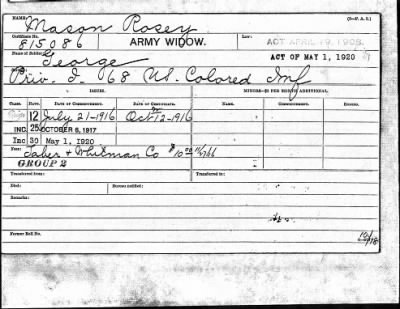 NAME: Mason Rosey. (3-47 A. D.)
Certificate No. 815086 ARMY WIDOW. Law: ACT APRIL 19, 1908.
ACT OF MAY 1, 1920
Name of Soldier: George
Priv. I. 68 US. Colored Inf
ISSUES. MINORS—$2 PER MONTH ADDITIONAL.
CLASS. RATE. DATE OF COMMENCEMENT. DATE OF CERTIFICATE. COMMENCING. ENDING.
12 July 21-1916 Oct-12-1916
INC. 25 OCTOBER 6, 1917
Inc 30 May 1, 1920
Fees: Taber & Whitman Co $10.00
GROUP 2
Transferred from: Transferred to:
Died: Bureau notified:
Remarks:
Former Roll No.